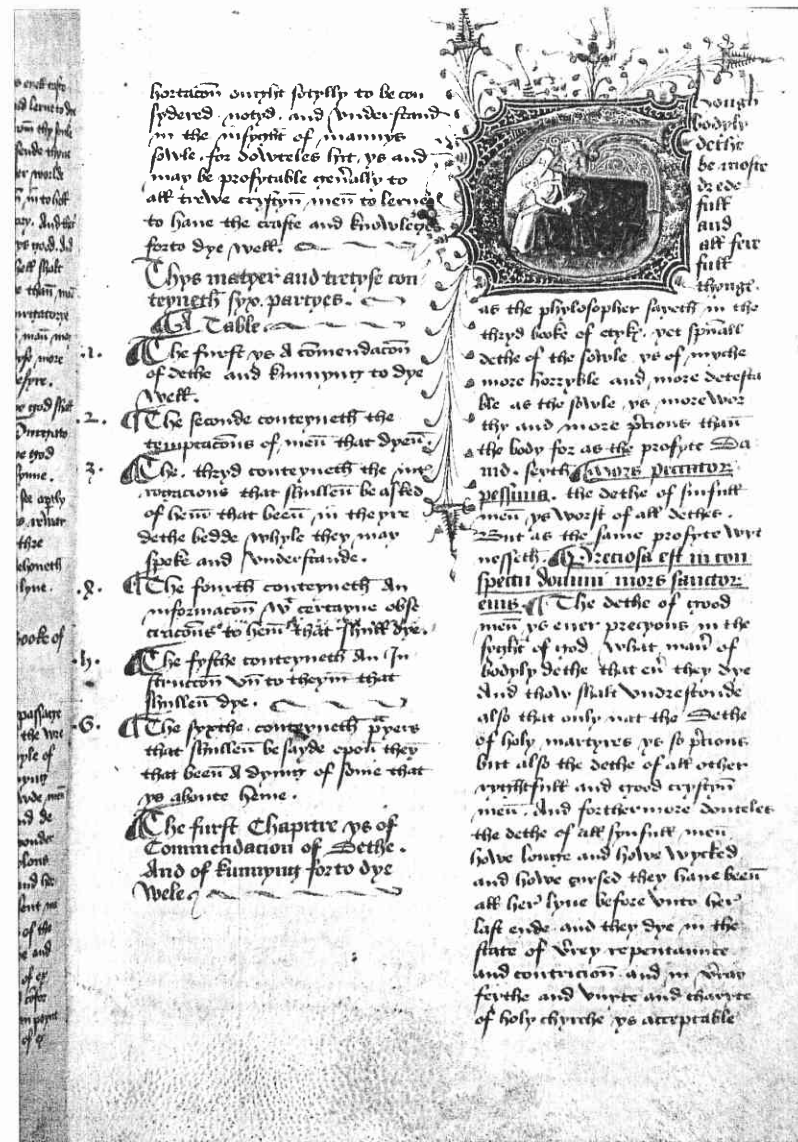 hortacōn ought sotylly to be con
sydered notyd. and vnderstand
in the insyght of mannys
sowle. for dowteles hit ys and
may be profytable gen̄ally to
all trewe crystyn men̄ to lerne
to haue the crafte and knowlege
forto dye well.
Thys matyer and tretyse con
teyneth syx. partyes.
¶ A Table.
.1. ¶ The furst ys A cōmendacōn
of dethe and kunnyng to dye
well.
.2. ¶ The seconde conteyneth the
temptacōns of men̄ that dyen̄.
3. ¶ The. thryd conteyneth the int
rogacions that shullen̄ be asked
of hem̄ that been̄, in theyre
dethe bedde whyle they may
speke and vnderstande.
.4. ¶ The fourth conteyneth An
informacōn wt certayne obse
cracōns to hem̄ that shull dye.
.5. ¶ The fyfthe conteyneth An In
struccōn vn̄ to theym that
shullen̄ dye.
.6. ¶ The syxthe conteyneth p̄yers
that shullen̄ be sayde opon̄ they̅
that been̄ A dying of some that
ys aboute heme.
¶ The furst Chapitre ys of
Commendacion of Dethe.
And of kunnyng forto dye
Wele
hough
bodyly
dethe
be moste
drede
full
and
all fere
full
thynge.
as the phylosopher sayeth in the
thryd booke of etyk. yet spūall
dethe of the sowle ys of myche
more horryble and more detesta
ble as the sowle ys more wor
thy and more p̄cious than̄
the body for as the profyte Da
uid. seyth ¶ Mors peccator
pessima. the dethe of sinfull
men̄ ys worst of all dethes.
But as the same profyte wyt
nesseth. ¶ Preciosa est in con
spectu domini mors sanctor
eius. ¶ The dethe of good
men̄ ys euer precyous in the
syght of god what man̄ of
bodyly dethe that eū they dye
And thow shalt vndrestonde
also that only not the Dethe
of holy martyres ys so p̄cious
but also the dethe of all other
ryghtfull and good crystyn̄
men̄. And forthermore douteles
the dethe of all synfull men̄
howe longe and howe wycked
and howe cursed they haue been̄
all her lyue before vnto her
last ende and they dye in the
state of v̄rey repentaunce
and contricion̄ and in v̄ray
feythe and vnyte and charyte
of holy chyrche ys acceptable